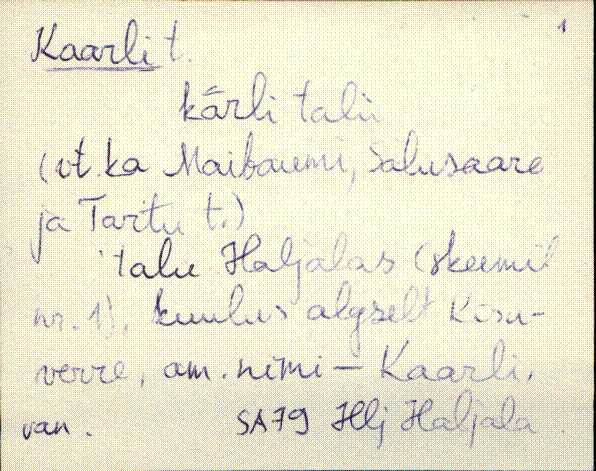 1
Kaarli t.
kärli talu
(vt. ka Maibaumi, Salusaare
ja Tartu t.)
talu Haljalas (skeemil
nr. 1), kuulus algselt Kisu-
verre, am. nimi – Kaarli.
van. SA79 Hlj Haljala